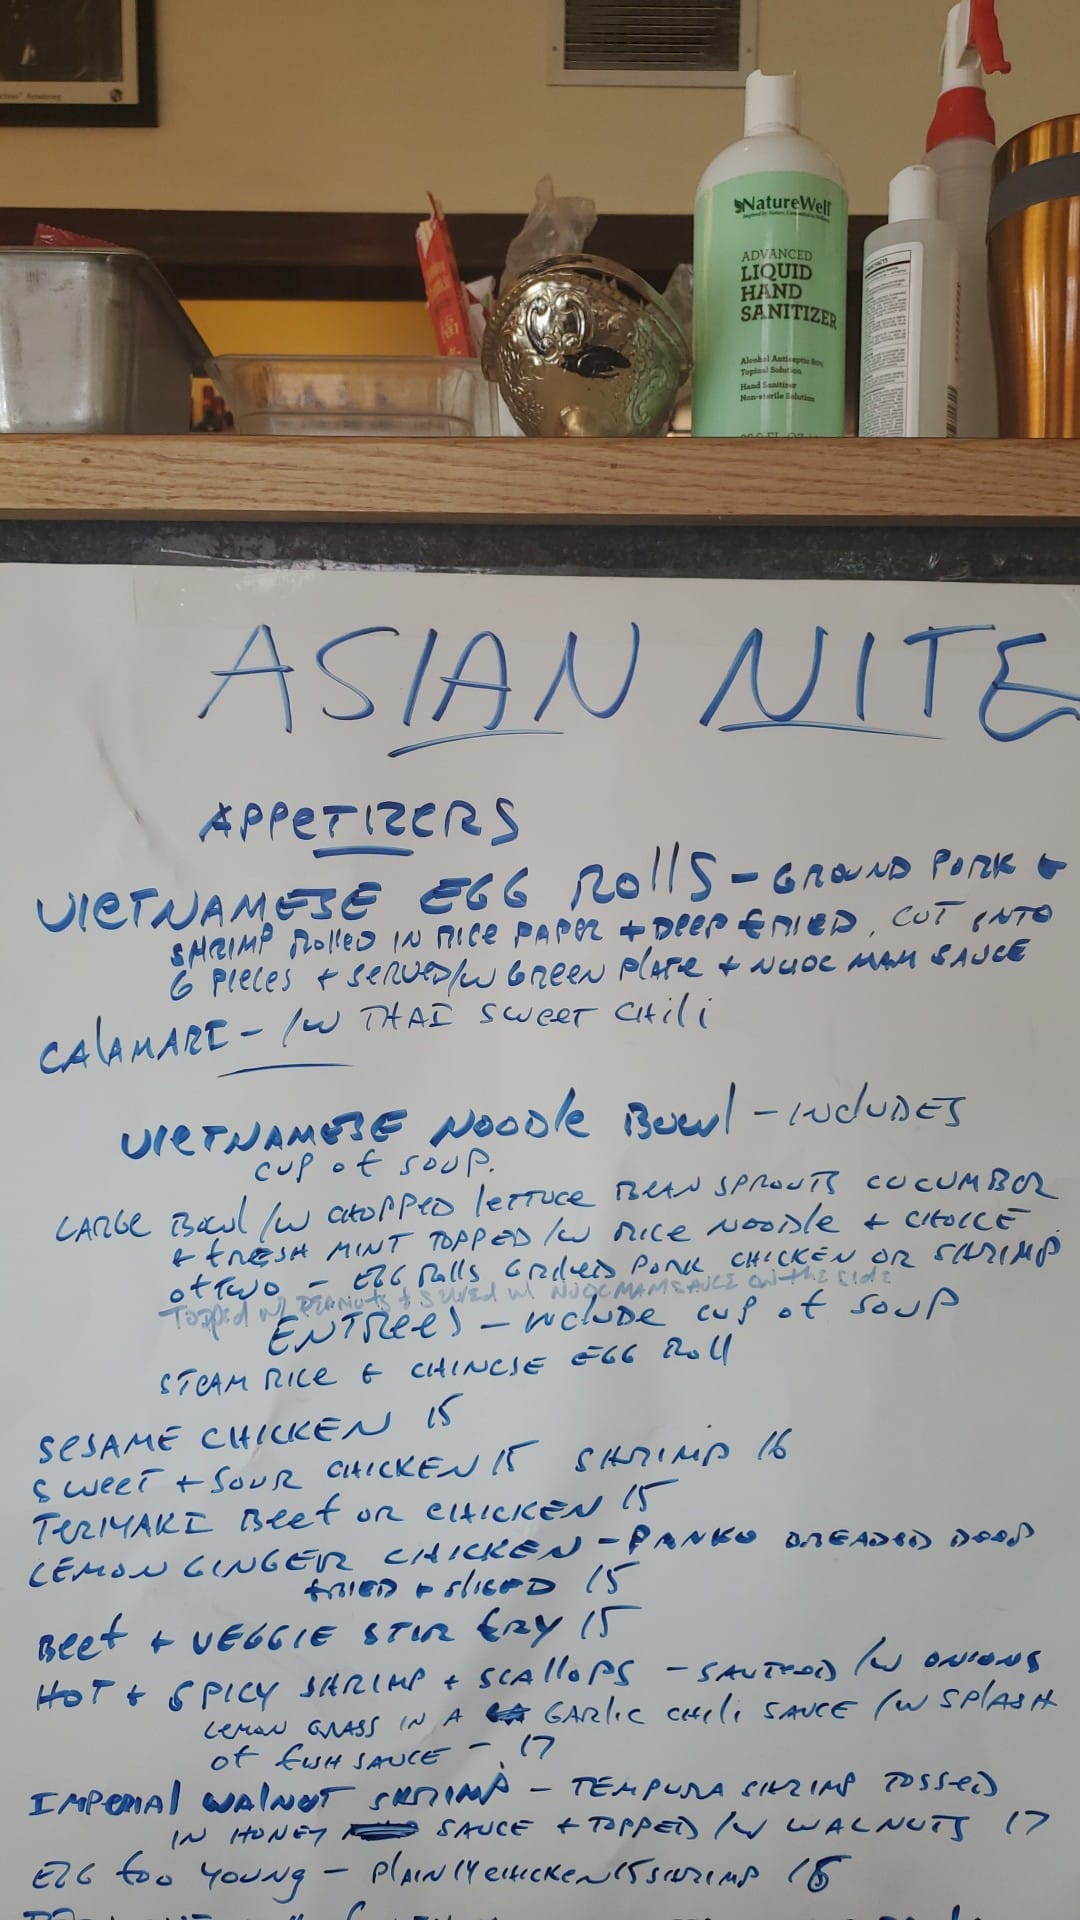 NatureWell
ADVANCED
LIQUID
HAND
SANITIZER
Alcohol Antiseptic 80%
Topical Solution
Hand Sanitizer
Non-sterile Solution
ASIAN NITE
APPETIZERS
VIETNAMESE EGG ROLLS - GROUND PORK &
SHRIMP ROLLED IN RICE PAPER + DEEP FRIED, CUT INTO
6 PIECES + SERVED /W GREEN PLATE + NUOC MAM SAUCE
CALAMARI - /W THAI SWEET CHILI
VIETNAMESE NOODLE BOWL - INCLUDES
CUP OF SOUP.
LARGE BOWL /W CHOPPED LETTUCE BEAN SPROUTS CUCUMBER
+ FRESH MINT TOPPED /W RICE NOODLE + CHOICE
OF TWO - EGG ROLLS GRILLED PORK CHICKEN OR SHRIMP
TOPPED W/ PEANUTS & SERVED W/ NUOC MAM SAUCE ON THE SIDE
ENTREES - INCLUDE CUP OF SOUP
STEAM RICE & CHINESE EGG ROLL
SESAME CHICKEN 15
SWEET + SOUR CHICKEN 15 SHRIMP 16
TERIYAKI BEEF OR CHICKEN 15
LEMON GINGER CHICKEN - PANKO BREADED DEEP
FRIED + SLICED 15
BEEF + VEGGIE STIR FRY 15
HOT + SPICY SHRIMP + SCALLOPS - SAUTEED /W ONIONS
LEMON GRASS IN A GARLIC CHILI SAUCE /W SPLASH
OF FISH SAUCE - 17
IMPERIAL WALNUT SHRIMP - TEMPURA SHRIMP TOSSED
IN HONEY SAUCE + TOPPED /W WALNUTS 17
EGG FOO YOUNG - PLAIN 14 CHICKEN 15 SHRIMP 16